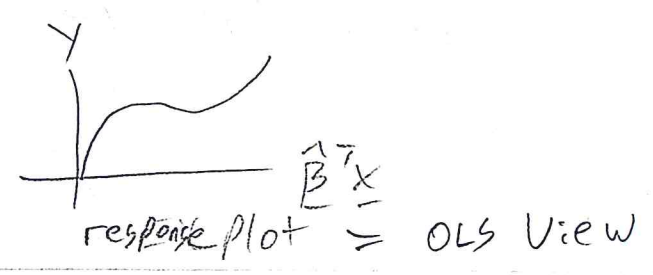 Y
β̂ᵀx
response plot = OLS View